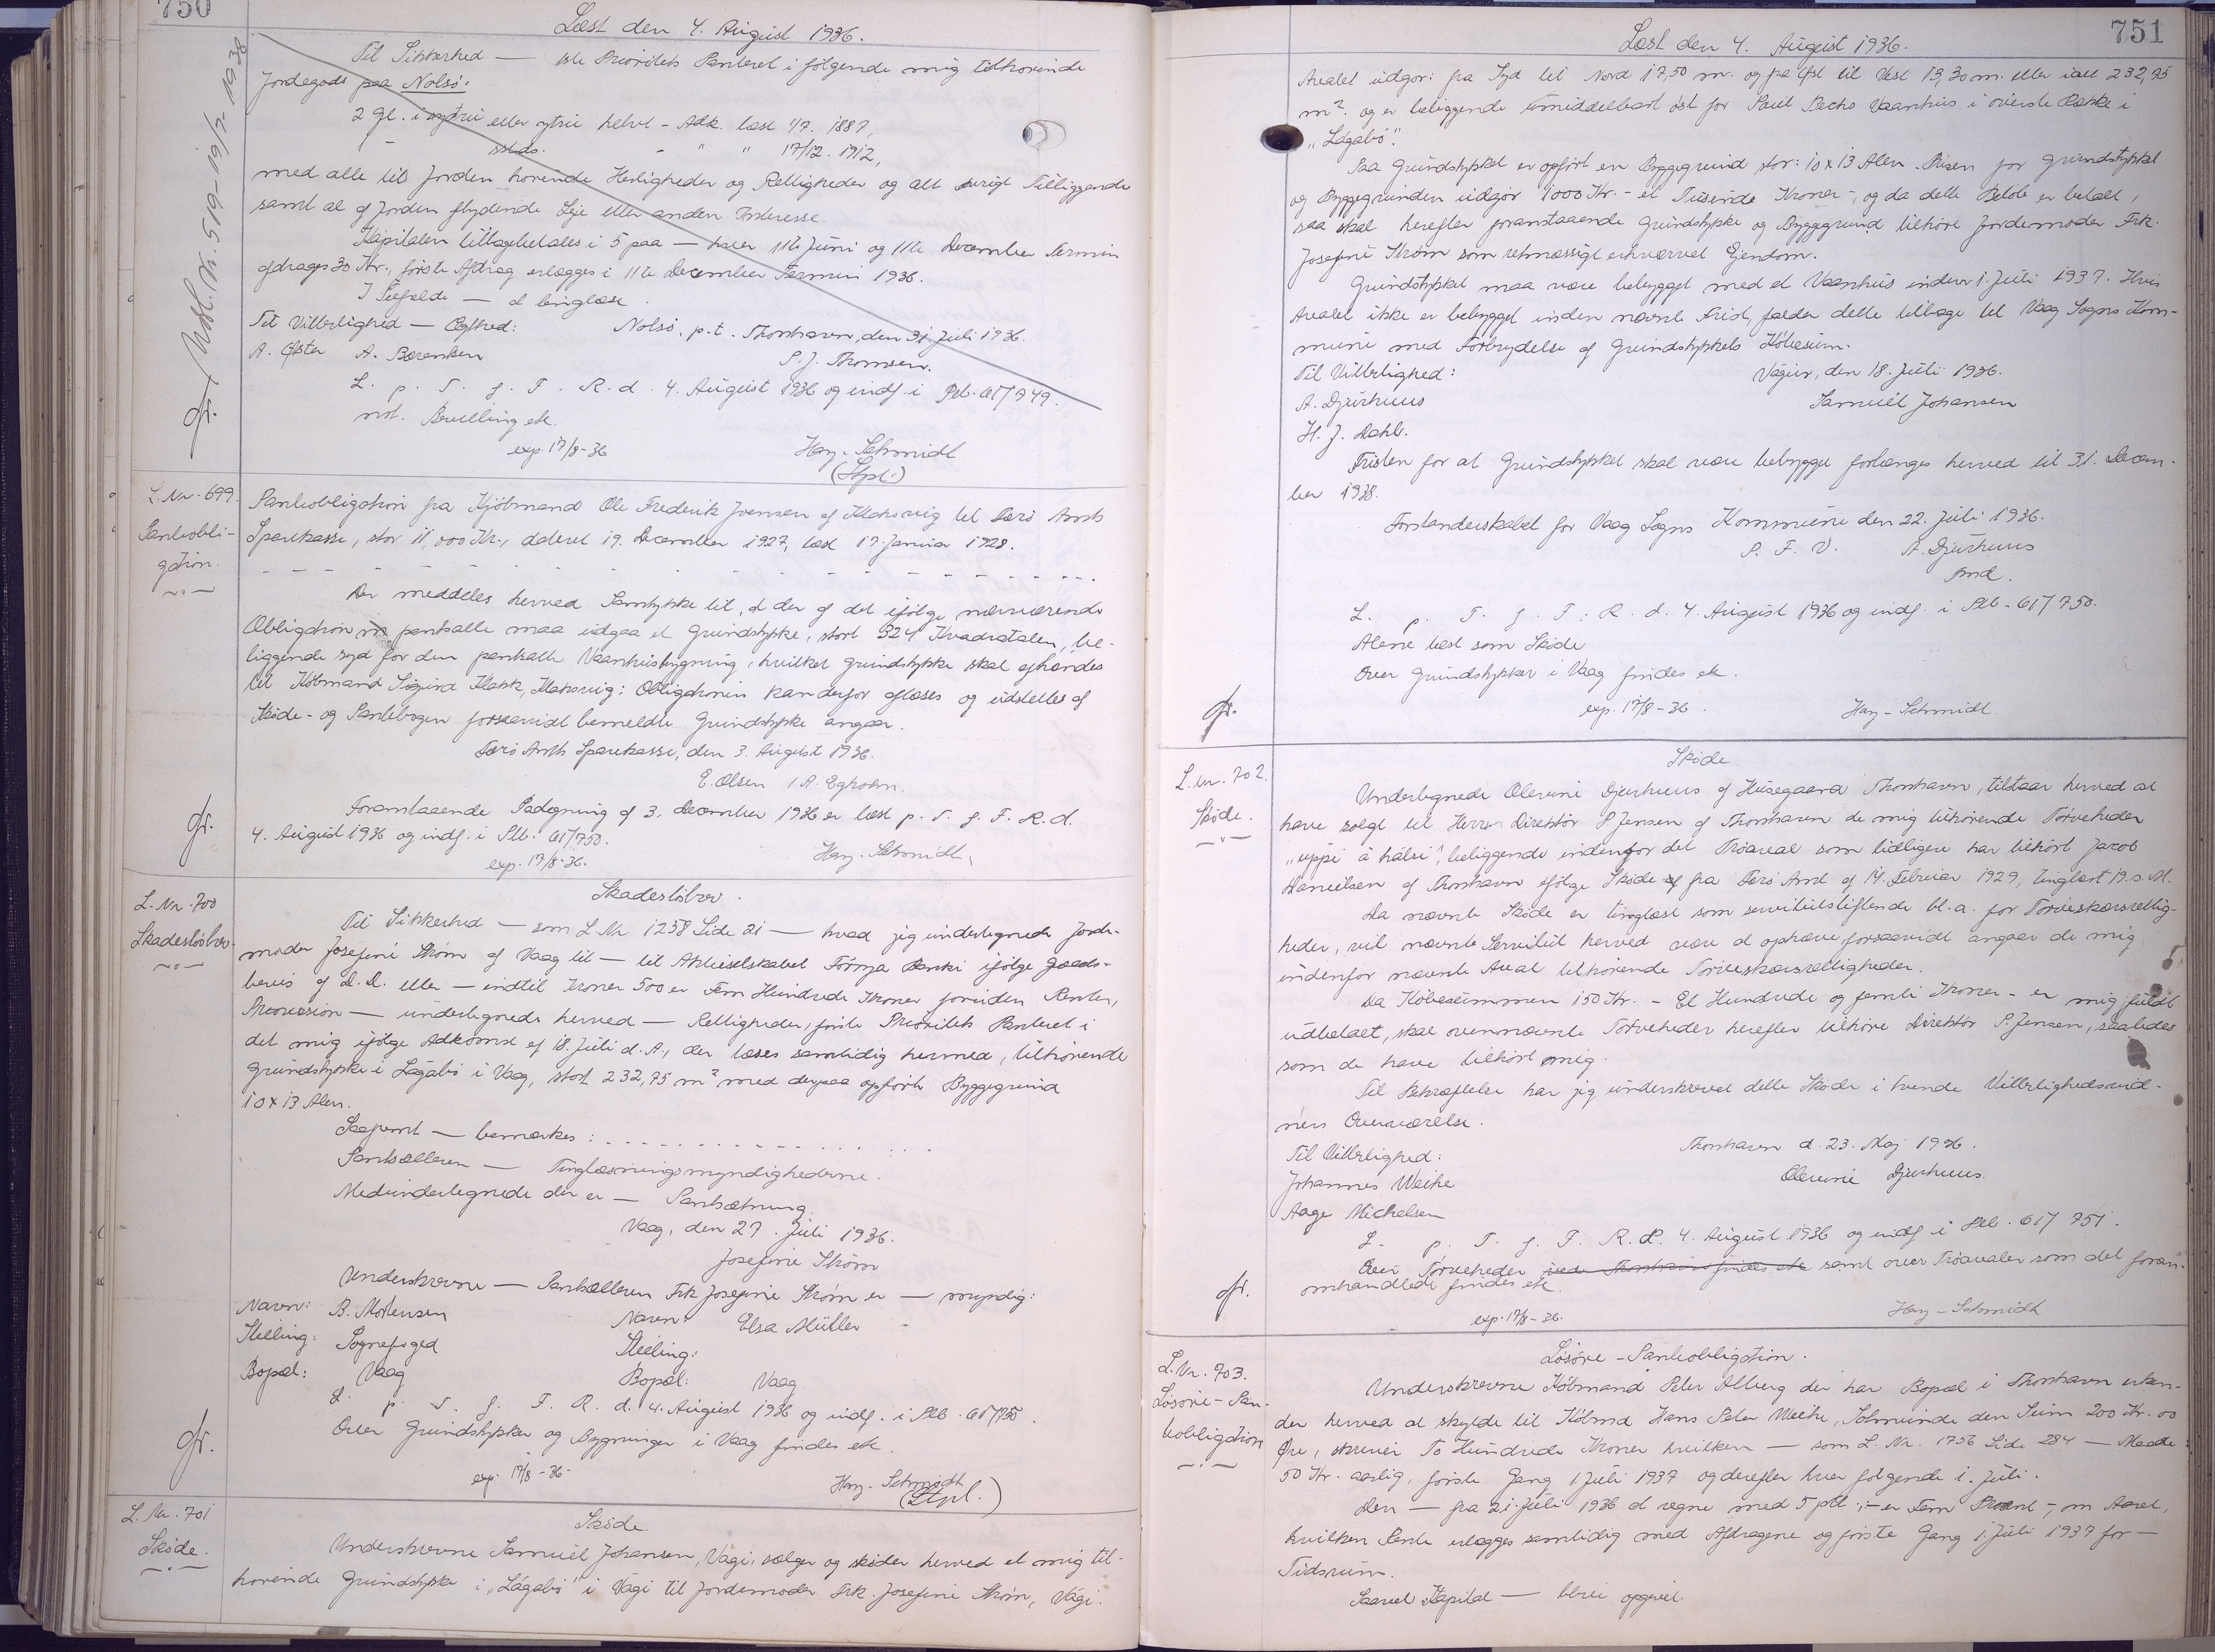 750
Læst den 4. August 1936.
Til Sikkerhed — 1ste Prioritets Panteret i følgende mig tilhørende
Jordegods paa Nolsø:
2 Gl. i nytrui eller ytrii helvt - Adk. læst 1/7. 1887,
- sstds. - " " 17/12. 1912,
med alle til Jorden hørende Herligheder og Rettigheder og alt øvrigt Tilliggende
samt al af Jorden flydende Leje eller anden Interesse.
Kapitalen tilbagebetales i 5 paa — hver 11te Juni og 11te December Termin
afdrages 30 Kr., første Afdrag erlægges i 11te December Termin 1936.
I Tilfælde — at tinglæse.
Til Vitterlighed — Ægthed: Nolsø, p.t. Thorshavn, den 31. Juli 1936.
A. Øster A. Børentsen P. J. Thomsen.
L. p. T. f. F. R. d. 4. August 1936 og indf. i Ptb. 61/749.
mod. Bevilling etc.
exp. 17/8-36 Hay-Schmidt
(Stpl.)
Udsl. Nr. 519 - 19/2 1938
gr.
L. Nr. 699.
Panteobli-
gation.
Panteobligation fra Kjøbmand Ole Frederik Joensen af Klaksvig til Færø Amts
Sparekasse, stor 11,000 Kr., dateret 19. December 1927, læst 17. Januar 1928.
Der meddeles herved Samtykke til, at der af det ifølge nærværende
Obligation pantsatte maa udgaa et Grundstykke, stort 324 Kvadratalen, be-
liggende syd for den pantsatte Vaanhusbygning, hvilket Grundstykke skal afhændes
til Købmand Sigurd Klakk, Klaksvig: Obligationen kan derfor aflæses og udslettes af
Skøde- og Pantebogen forsaavidt bemeldte Grundstykke angaar.
Færø Amts Sparekasse, den 3. August 1936.
E. Olsen / A. Egholm.
Foranstaaende Paategning af 3. December 1936 er læst p. T. f. F. R. d.
4. August 1936 og indf. i Ptb. 61/750.
exp. 17/8-36. Hay-Schmidt.
gr.
L. Nr. 700
Skadesløsbrev.
Skadesløsbrev.
Til Sikkerhed — som L Nr 1258 Side 21 — hvad jeg undertegnede Jorde-
moder Josefine Strøm af Vaag til — til Aktieselskabet Føroya Banki ifølge Gælds-
bevis af D.D. eller — indtil Kroner 500 er Fem Hundrede Kroner foruden Renter,
Provision — undertegnede herved — Rettigheder, første Prioritets Panteret i
det mig ifølge Adkomst af 18. Juli d.A., der læses samtidig hermed, tilhørende
Grundstykke i Lágabø i Vaag, stort 232,75 m² med derpaa opførte Byggegrund
10 x 13 Alen.
Saafremt — bemærkes:
Pantsætteren — Tinglæsningsmyndighederne.
Medundertegnede der er — Pantsætning.
Vaag, den 27. Juli 1936.
Josefine Strøm
Underskrevne — Pantsætteren Frk Josefine Strøm er — myndig:
Navn: B. Mortensen Navn: Elsa Müller
Stilling: Sognefoged Stilling:
Bopæl: Vaag Bopæl: Vaag.
L. p. T. f. F. R. d. 4. August 1936 og indf. i Ptb. 61/750.
Over Grundstykker og Bygninger i Vaag findes etc.
exp. 17/8-36. Hay-Schmidt
(Stpl.)
gr.
L. Nr. 701
Skøde.
Skøde.
Underskrevne Samuel Johansen, Vági, sælger og skøder herved et mig til-
hørende Grundstykke i „Lágabø" i Vági til Jordemoder Frk. Josefine Strøm, Vági.
751
Læst den 4. August 1936.
Arealet udgør: fra Syd til Nord 17,50 m. og fra Øst til Vest 13,30 m. eller ialt 232,75
m² og er beliggende umiddelbart øst for Poul Bechs Vaanhus i øverste Række i
„Lágabø".
Paa Grundstykket er opført en Byggegrund stor: 10 x 13 Alen. Prisen for Grundstykket
og Byggegrunden udgør 1000 Kr. - et Tusinde Kroner -, og da dette Beløb er betalt,
saa skal herefter foranstaaende Grundstykke og Byggegrund tilhøre Jordemoder Frk.
Josefine Strøm som retmæssigt erhvervet Ejendom.
Grundstykket maa være bebygget med et Vaanhus inden 1. Juli 1937. Hvis
Arealet ikke er bebygget inden nævnte Frist, falder dette tilbage til Vaag Sogns Kom-
mune med Fortrydelse af Grundstykkets Købesum.
Til Vitterlighed: Vágur, den 18. Juli 1936.
A. Djurhuus Samuel Johansen
H. J. Dahl.
Fristen for at Grundstykket skal være bebygget forlænges herved til 31. Decem-
ber 1938.
Forstanderskabet for Vaag Sogns Kommune den 22. Juli 1936.
P. F. V. A. Djurhuus
fmd.
L. p. T. f. F. R. d. 4. August 1936 og indf. i Ptb. 61/750.
Alene læst som Skøde
Over Grundstykker i Vaag findes etc.
exp. 17/8-36. Hay-Schmidt.
gr.
L. Nr. 702.
Skøde.
Skøde
Undertegnede Olevine Djurhuus af Húsegaard Thorshavn, tilstaar herved at
have solgt til Herr Direktør P Jensen af Thorshavn de mig tilhørende Tørveheder
„uppi á hálsi", beliggende indenfor det Tróareal som tidligere har tilhørt Jacob
Danielsen af Thorshavn ifølge Skøde fra Færø Amt af 14. Februar 1929, tinglæst 19. s. M.
Da nævnte Skøde er tinglæst som servitutstiftende bl.a. for Tørveskærsrettig-
heder, vil nævnte Servitut herved være at ophæve forsaavidt angaar de mig
indenfor nævnte Areal tilhørende Tørveskærsrettigheder.
Da Købesummen 150 Kr. - Et Hundrede og femti Kroner - er mig fuldt
udbetalt, skal ovennævnte Tørveheder herefter tilhøre Direktør P. Jensen, saaledes
som de have tilhørt mig.
Til Bekræftelse har jeg underskrevet dette Skøde i tvende Vitterlighedsvid-
ners Overværelse.
Til Vitterlighed: Thorshavn d. 23. Maj 1936.
Johannes Weihe Olevine Djurhuus.
Aage Michelsen
L. p. T. f. F. R. d. 4. August 1936 og indf. i Ptb. 61/751.
Over Tørveheder ved Thorshavn findes etc samt over Tróarealer som det foran-
omhandlede findes etc.
exp. 17/8-36. Hay-Schmidt
gr.
L. Nr. 703.
Løsøre-Pan-
teobligation
Løsøre-Panteobligation.
Underskrevne Købmand Peter Alberg der har Bopæl i Thorshavn erken-
der herved at skylde til Købmd Hans Peter Weihe, Solmunde den Sum 200 Kr. 00
Øre, skriver To Hundrede Kroner hvilken — som L. Nr. 1756 Side 284 — Maade:
50 Kr. aarlig, første Gang 1. Juli 1937 og derefter hver følgende 1. Juli.
Den — fra 21. Juli 1936 at regne med 5 pCt., - er Fem Procent -, om Aaret,
hvilken Rente erlægges samtidig med Afdragene og første Gang 1. Juli 1937 for —
Tidsrum.
Saavel Kapital — blive opgivet.